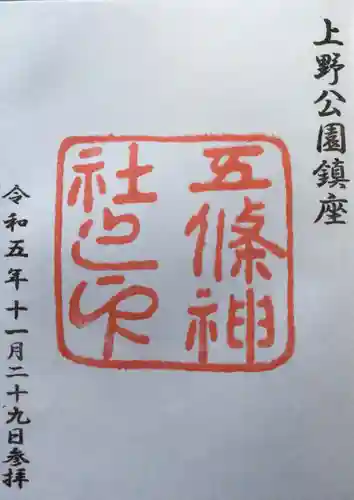 上野公園鎮座
五條神
社之印
令和五年十一月二十九日参拝